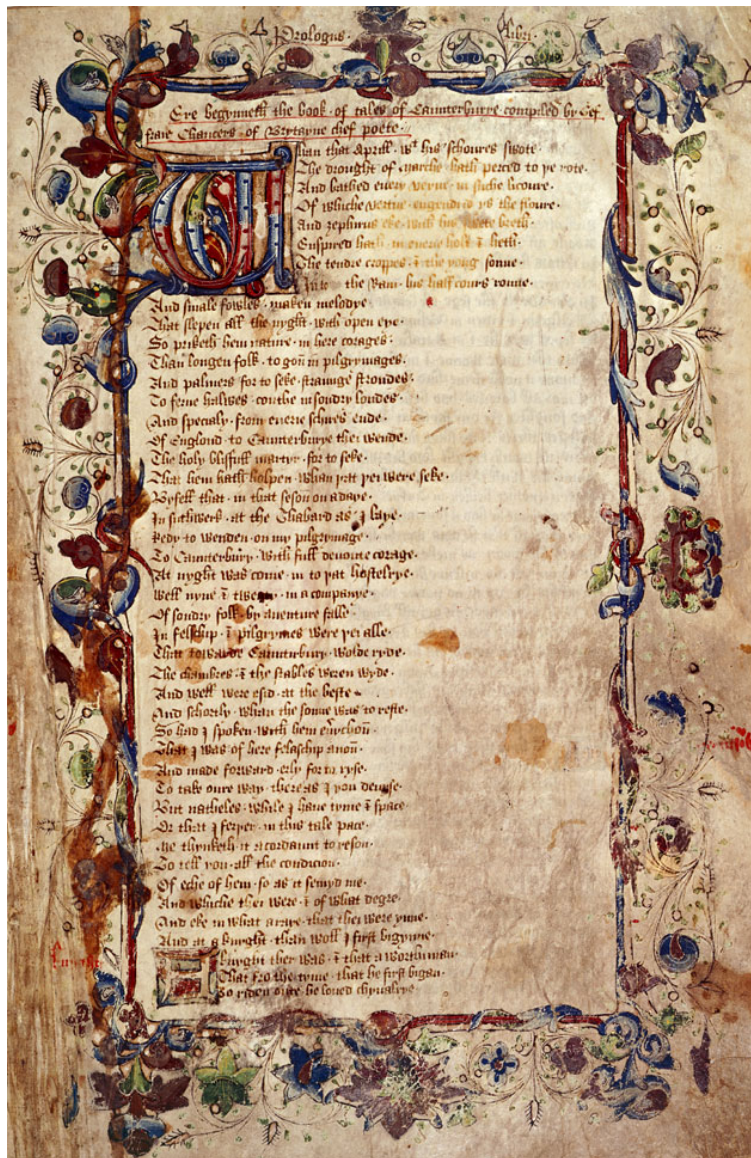 Prologus · libri ·
Ere begynneth the book · of tales of Caunterburye compiled by Gef
fraie Chaucers · of Brytayne chef poete ·
Whan that Aprill · wt his schoures swote
The drought of Marche hath perced to þe rote ·
And bathed euery veyne · in suche licoure ·
Of whiche vertue engendrid ys the floure ·
And zephirus eke with his swete breth ·
Enspired hath in euerie holt & heth ·
The tendre croppes · & the yong sonne ·
the Ram · his half cours ronne ·
And smale fowles · maken melodye ·
That slepen all the nyght · with open eye ·
So priketh hem nature · in here corages ·
Than longen folk · to gon in pilgrymages ·
And palmers for to seke · straunge strondes ·
To ferne halwes · couthe in sondry londes ·
And specialy · from euerie schires ende ·
Of Englond · to Caunterburye thei wende ·
The holy blisfull martyr · for to seke ·
That hem hath holpen · whan þat þei were seke ·
Byfell that · in that seson on a daye ·
In Suthwerk · at the Thabard as j laye ·
Redy to wenden · on my pilgrymage ·
To Caunterbury · with full deuoute corage ·
At nyght was come · in to þat hostelrye ·
Well nyne & twenty · in a companye ·
Of sondry folk · by auenture falle
In felschip · & pilgrymes were þei alle ·
That towarde Caunturbury · wolde ryde ·
The chambres · & the stables weren wyde ·
And well were esid · at the beste ·
And schortly · whan the sonne was to reste ·
So had j spoken · with hem euerychon
That j was of here felaschip anon ·
And made forward · erly for to ryse ·
To take oure way · there as j you deuyse ·
But natheles · while j haue tyme & space
Or that j ferþer · in this tale pace ·
Me thynketh it acordaunt to reson ·
To tell you · all the condicion ·
Of eche of hem · so as it semyd me ·
And whiche thei were · & of what degre ·
And eke in what araye · that thei were ynne ·
And at a knyght · than woll j first bigynne ·
A knyght ther was · & that a worthi man
That fro the tyme · that he first bigan ·
To riden oute · he loued chyualrye ·